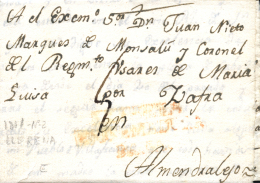 A el Excmo. Sor. Dn. Juan Nieto
Marques de Monsalú y Coronel
del Regmto. Usares de Maria
Luisa por Zafra
en
LLERENA
Almendralejo
E